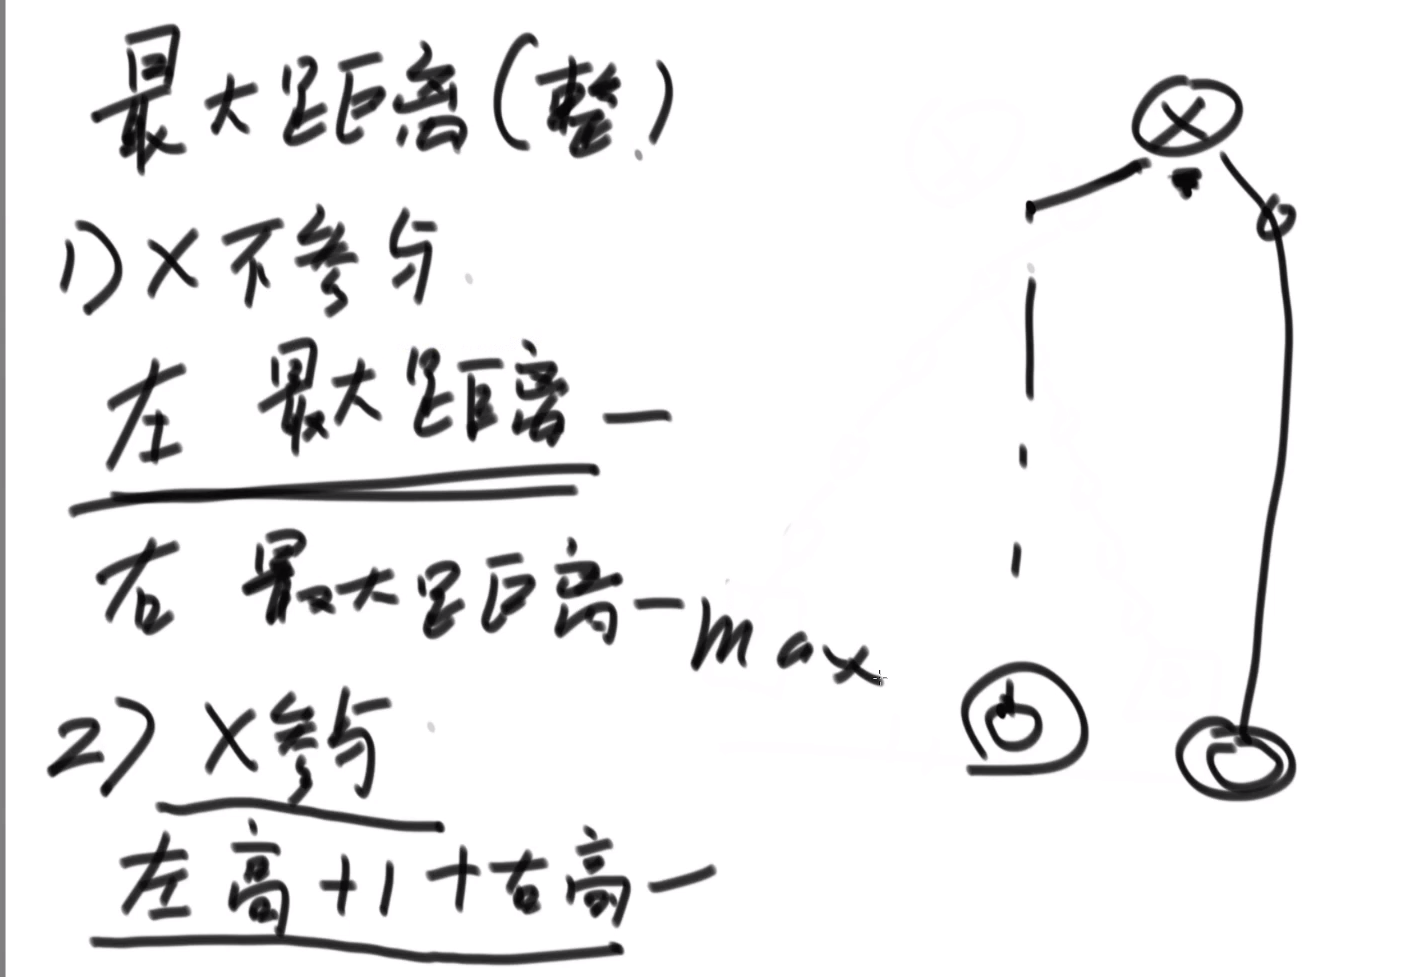 最大距离(整)
1) X 不参与
左 最大距离 —
右 最大距离 — max
2) X 参与
左高 + 1 + 右高 —
X